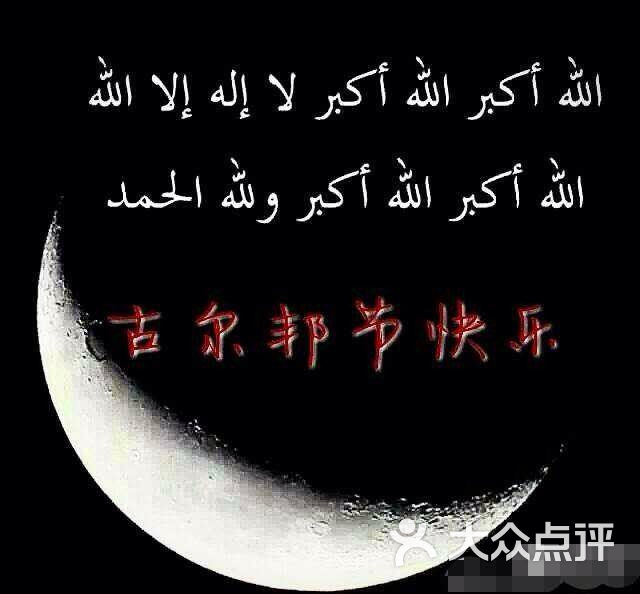 الله أكبر الله أكبر لا إله إلا الله
الله أكبر الله أكبر ولله الحمد
古尔邦节快乐
大众点评